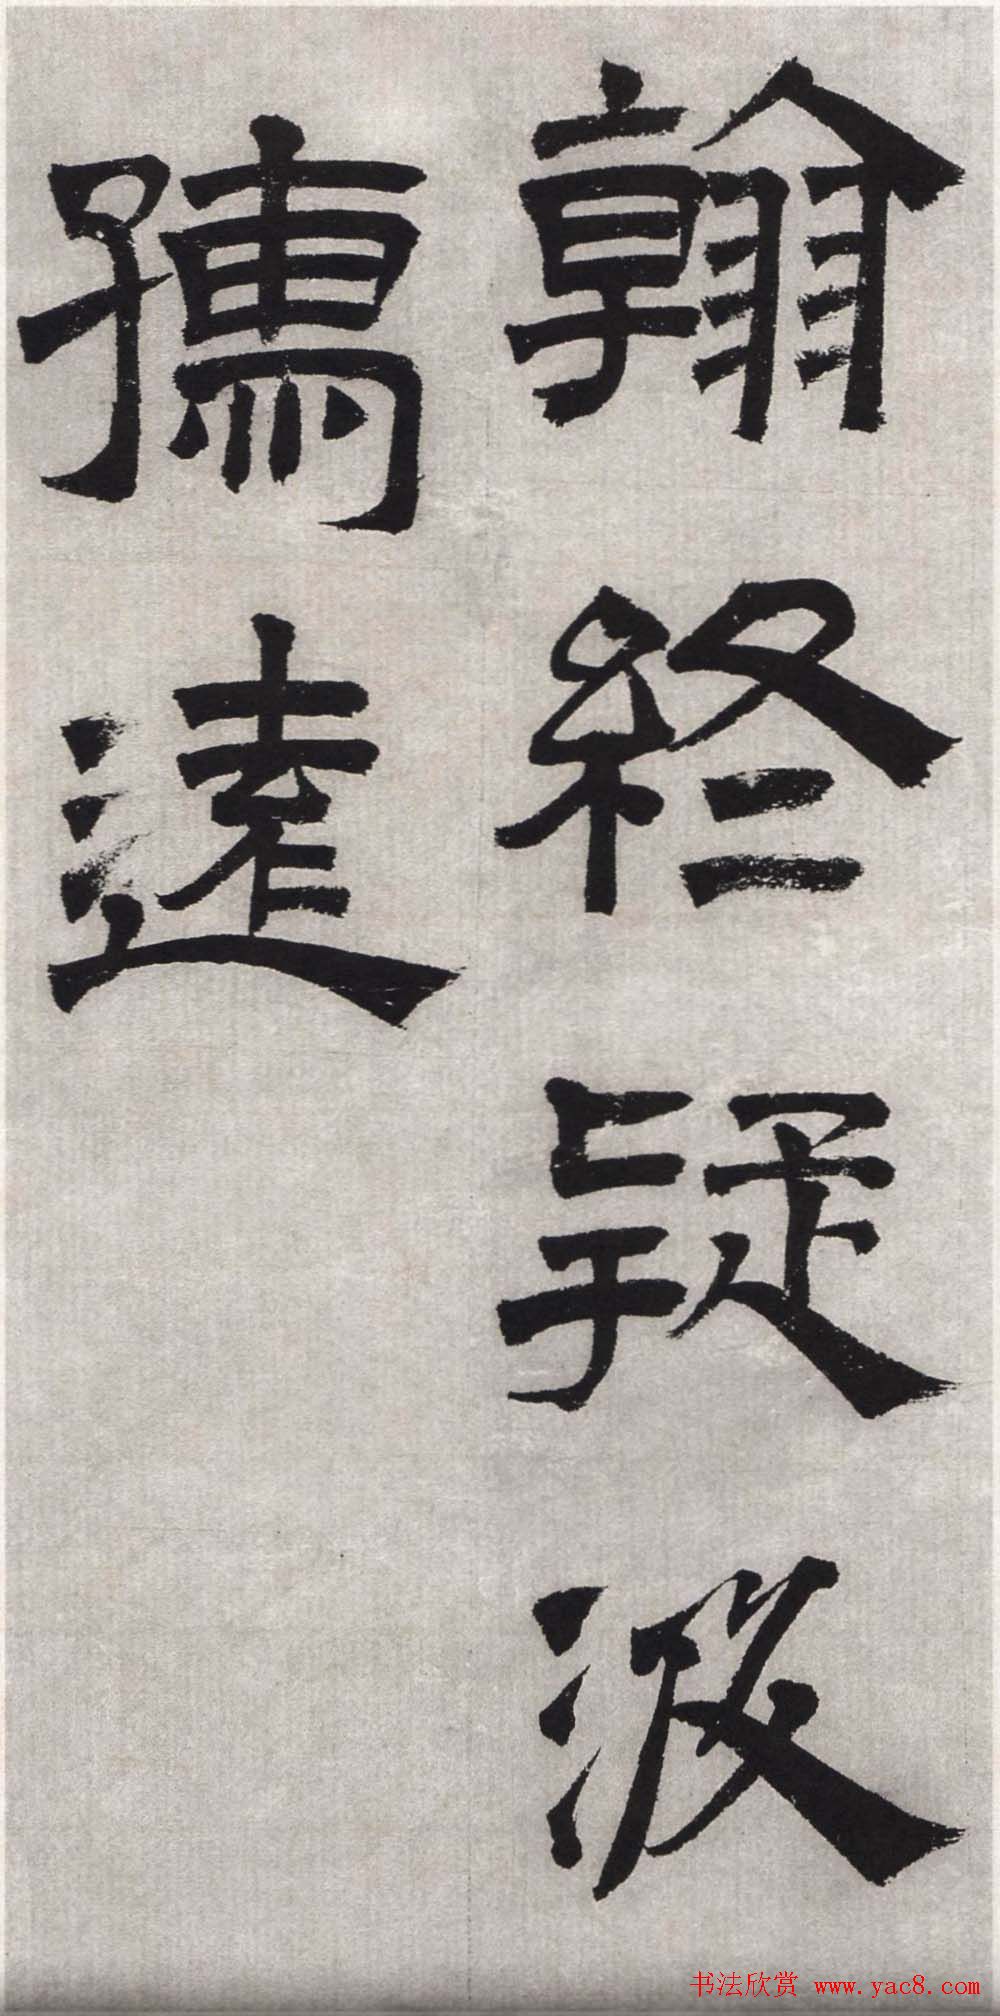 翰終疑汲
遠
书法欣赏 www.yac8.com